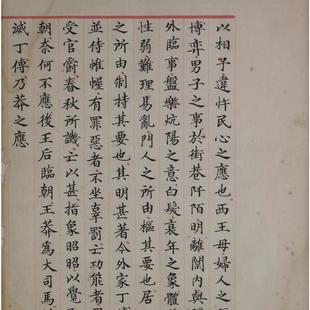 以相予違忤民心之應也西王母婦人之
博弈男子之事於街巷阡陌明離闈內與
外臨事盤樂炕陽之意白髮衰年之象體
性弱難理易亂門人之所由樞其要也居
之所由制持其要也其明甚著今外家丁
並侍帷幄有罪惡者不坐辜罰亡功能者
受官爵春秋所譏亡以甚指象昭昭以覺
朝奈何不應後王后臨朝王莽為大司馬
滅丁傅乃莽之應